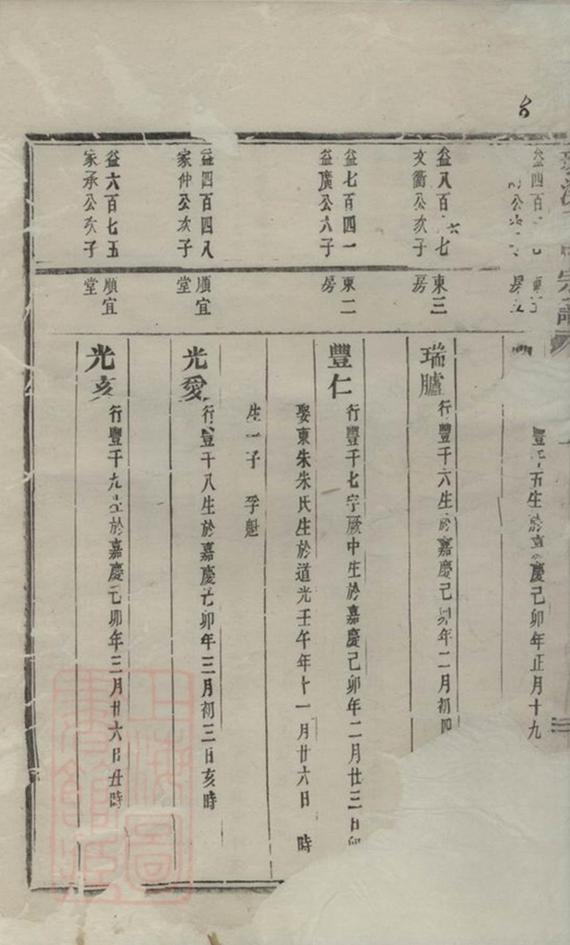 益四百
豐千五生於嘉慶己卯年正月十九
益八百六七
文衢公次子
東三
房
瑞臚
行豐千六生於嘉慶己卯年二月初四
益七百四一
益廣公六子
東二
房
豐仁
行豐千七字厥中生於嘉慶己卯年二月廿三日卯
娶東朱朱氏生於道光壬午年十一月廿六日 時
生一子 孚魁
益四百四八
家仲公次子
順宜
堂
光愛
行豐千八生於嘉慶己卯年三月初三日亥時
益六百七五
家承公次子
順宜
堂
光亥
行豐千九生於嘉慶己卯年三月廿六日丑時